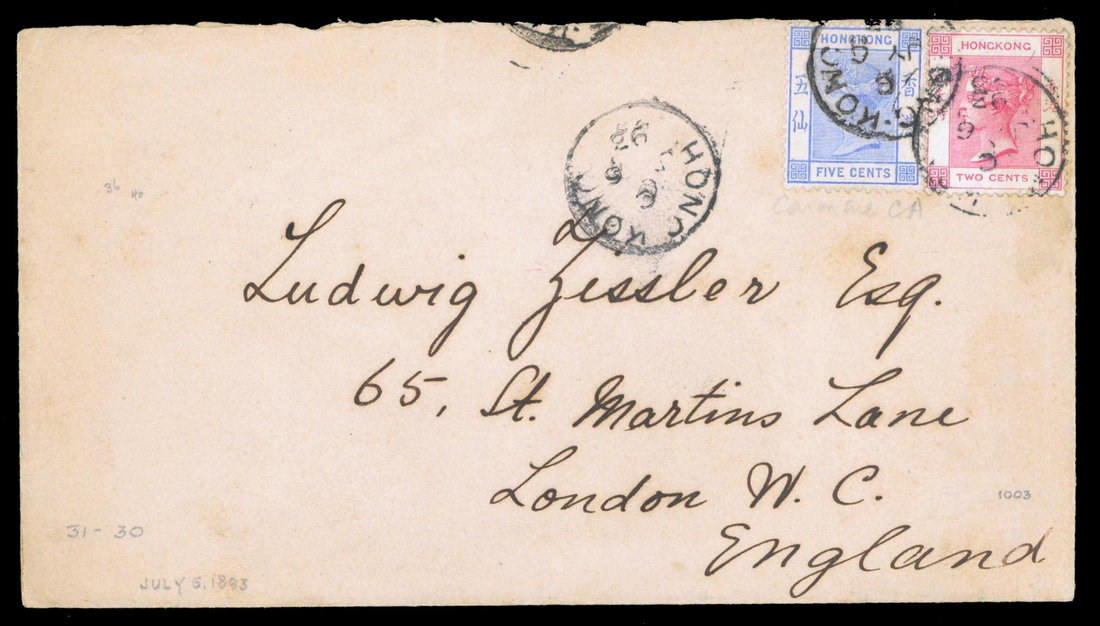 HONGKONG
五仙 香
FIVE CENTS
HONGKONG
TWO CENTS
HONG KONG
HONG KONG
93
36
40
Ludwig Zessler Esq.
65, St. Martins Lane
London W. C.
1003
England
31-30
JULY 5, 1893